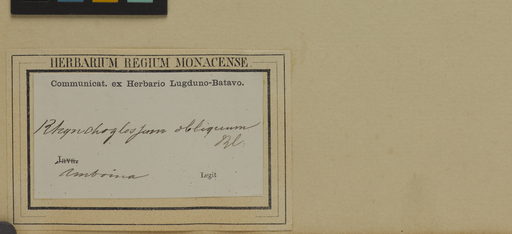 HERBARIUM REGIUM MONACENSE.
Communicat. ex Herbario Lugduno-Batavo.
Rhynchoglossum obliquum
Bl.
Java.
Amboina
Legit